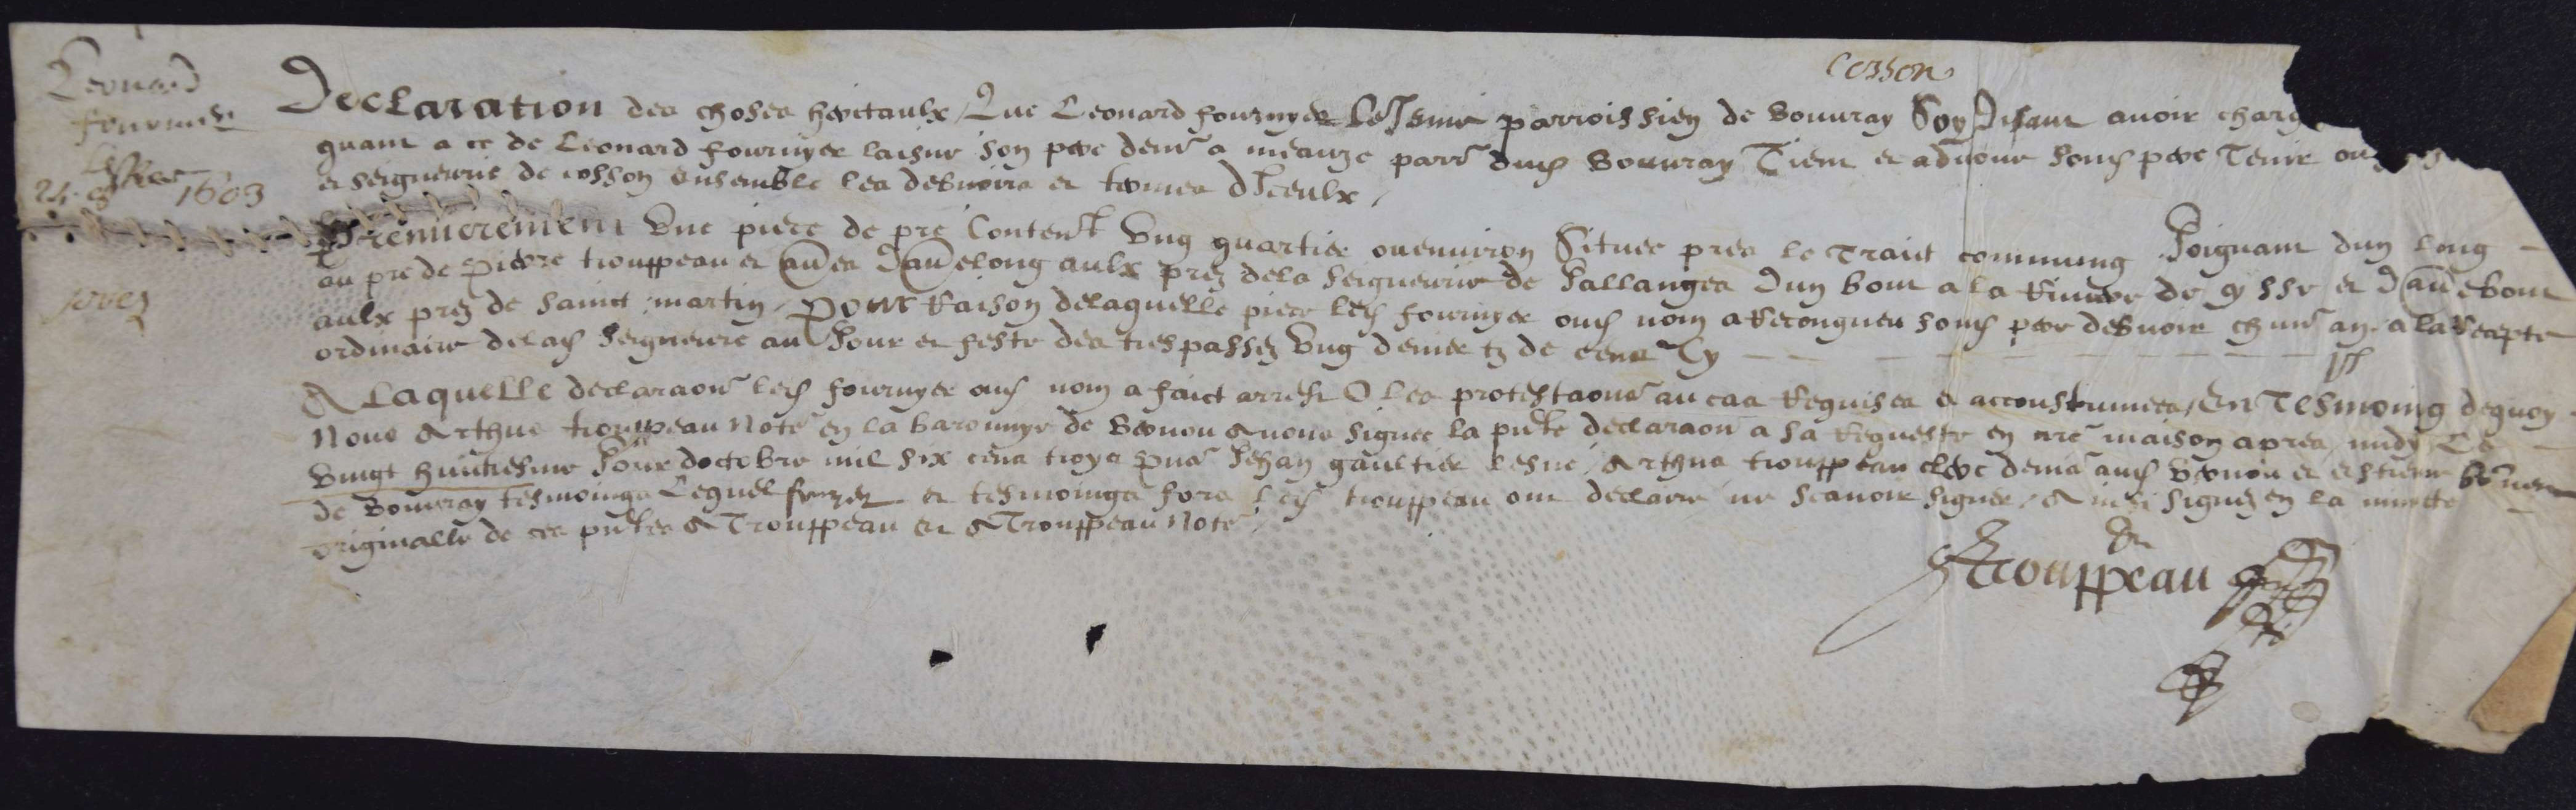 Cosson
Leonard
fournier
24 8 1603
Declaration des choses heritaulx Que Leonard fournyer Le Jeune parroissien de Bouuray Soy disant auoir charg
quant a ce de Leonard fournyer laisne son pere demr a meauze parr dud Bouuray Tient et aduoue soubz pere Tenir
et seigneurie de cosson ensemble les debuoirs et termes dIceulx
Premierement Vne piece de pre Content Vng quartier ouenuiron Situee pres le Traict commung Joignant dun long
au pre de Pierre trouppeau et aues Daue long aulx prez dela seigneurie de Sallanges Dun bout a la Riuiere de et Daue bout
aulx prez de sainct martin Pour Raison delaquelle piece led fournyer oud nom a Recongneu soubz pere debuoir chun an a la Recepte
ordinaire delad seigneurie au Jour et feste des trespassez Vng denier tz de cens Cy
A Laquelle declaraon led fournyer oud nom a faict arrest O les protestaons au cas Requises et accoustumees En Tesmoing dequoy
Nous Arthus trouppeau Note en la baronnye de Vernou Auons signee la pnte declaraon a sa Requeste en nre maison apres midy Le
Vingt huictiesme Jour doctobre mil six cens troys pns Jehan gaultier lesne Arthus trouppeau clerc demr aud Vernou et estienne
de Bouuray tesmoings Lequel et tesmoings fors led trouppeau ont declaire ne scauoir signer Ainsi signez en la minutte
originalle de ces pntes A Trouppeau et A Trouppeau Note
A Trouppeau